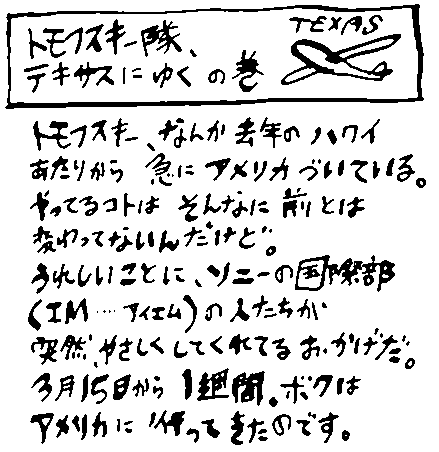 トモフスキー隊、
テキサスにゆくの巻
TEXAS
トモフスキー、なんか去年のハワイ
あたりから急にアメリカづいている。
やってるコトはそんなに前とは
変わってないんだけど。
うれしいことに、ソニーの国際部
(IM…アイエム)の人たちが
突然、やさしくしてくれてるおかげだ。
3月15日から1週間。ボクは
アメリカに行ってきたのです。